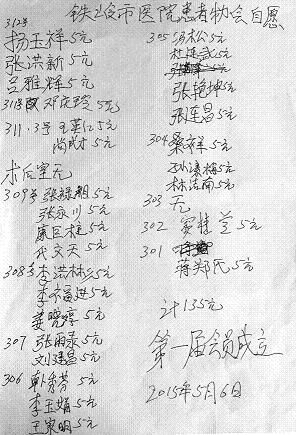 铁煤市医院患者协会自愿
312号
杨玉祥5元
张洪新5元
吕雅辉5元
313 邓庆玲5元
311.3号 王英仁5元
尚成才5元
术后室无
309号 张禄朝5元
张永川5元
康巨权5元
代文天5元
308号 李洪林5元
李富进5元
姜晓淳5元
307 张雨录5元
刘建昌5元
306 郭秀芬5元
李玉娟5元
王家明5元
305 汤松5元
杜延武5元
张艳坤5元
张连昌5元
304 桑祥5元
孙淑梅5元
林洁南5元
303 无
302 窦桂兰5元
301
蒋郑氏5元
计135元
第一届会员成立
2015年5月6日